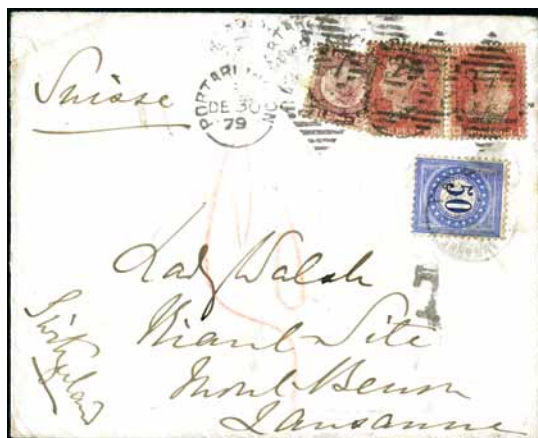 Suisse
PORTARLINGTON
DE 30
79
50
T
Lady Walsh
Riant Site
Mont Benon
Lausanne
Switzerland